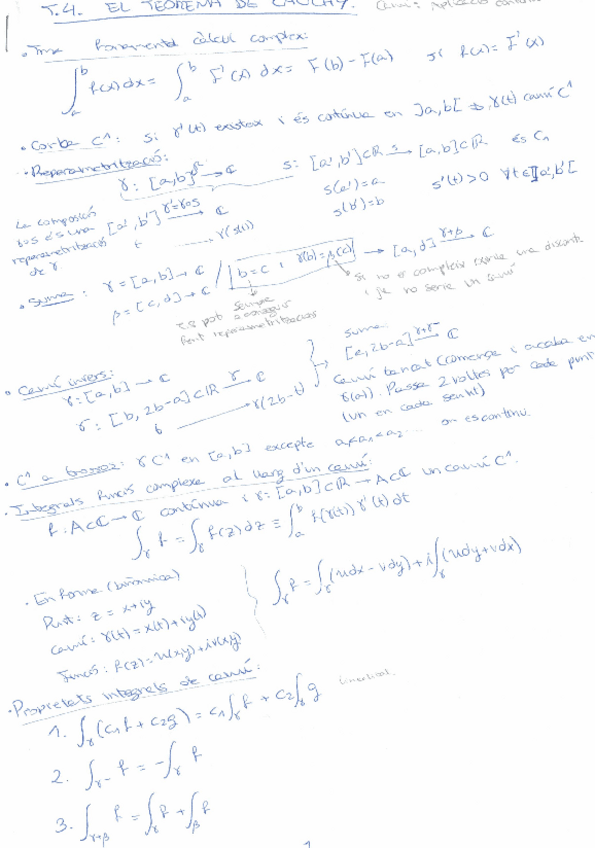 T.4. EL TEOREMA DE CAUCHY. Camí: Aplicació contínua
• Tma fonamental càlcul complex:
∫_a^b f(x)dx = ∫_a^b F'(x) dx = F(b) - F(a) si f(x) = F'(x)
• Corba C¹: Si γ'(t) existeix i és contínua en ]a,b[ → γ(t) camí C¹
• Reparametrització:
γ: [a,b] → ℂ s: [a',b']⊂ℝ → [a,b]⊂ℝ és C₁
s(a')=a
s(b')=b
s'(t)>0 ∀t∈]a',b'[
La composició γos és una reparametrització de γ
[a',b'] →^{γos} ℂ
t → γ(s(t))
• Suma: γ=[a,b] → ℂ / b=c i γ(b)=β(c) → [a,d] →^{γ+β} ℂ
β=[c,d] → ℂ
Es pot sempre aconseguir fent reparametritzacions
Si no es compleix existeix una discont. i ja no seria un camí
• Camí invers:
γ:[a,b] → ℂ
γ⁻: [b, 2b-a]⊂ℝ →^{γ⁻} ℂ
t → γ(2b-t)
suma:
[a,2b-a] →^{γ+γ⁻} ℂ
Camí tancat (comença i acaba en
γ(a)). Passa 2 voltes per cada punt
(un en cada sentit)
• C¹ a trossos: γ C¹ en [a,b] excepte a₁<a₂... on es continu.
• Integrals funció complexa al llarg d'un camí:
f: A⊂ℂ→ℂ contínua i γ:[a,b]⊂ℝ → A⊂ℂ un camí C¹.
∫_γ f = ∫_γ f(z)dz = ∫_a^b f(γ(t)) γ'(t) dt
• En forma (binòmica)
Punt: z = x+iy
Camí: γ(t) = x(t)+iy(t)
Funció: f(z) = u(x,y)+iv(x,y)
∫_γ f = ∫_γ (udx - vdy) + i∫_γ (udy+vdx)
• Propietats integrals de camí:
1. ∫_γ (c₁f + c₂g) = c₁∫_γ f + c₂∫_γ g
2. ∫_γ⁻ f = -∫_γ f
3. ∫_{γ+β} f = ∫_γ f + ∫_β f
1